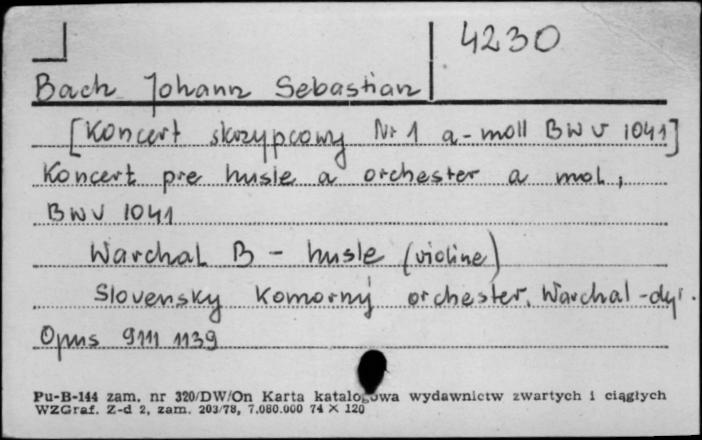 4230
Bach Johann Sebastian
[Koncert skrzypcowy Nr 1 a-moll BWV 1041]
Koncert pre husle a orchester a mol,
BWV 1041
Warchal B - husle (violine)
Slovensky Komorný orchester, Warchal-dyr.
Opus 9111 1139
Pu-B-144 zam. nr 320/DW/On Karta katalogowa wydawnictw zwartych i ciągłych
WZGraf. Z-d 2, zam. 203/78, 7.080.000 74 × 120